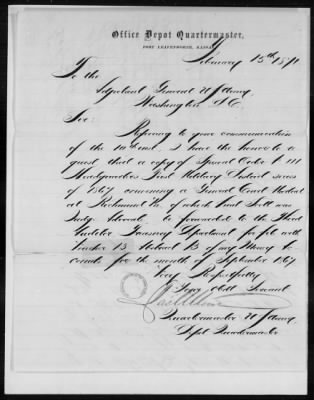 Office Depot Quartermaster,
FORT LEAVENWORTH, KANSAS,
February 15th 1871
To the
Adjutant General U S Army
Washington D C
Sir:
Refering to your communication
of the 10th inst. I have the honor to re
quest that a copy of Special Order No 111
Headquarters First Military District series
of 1867 concerning a General Court Martial
at Richmond Va. of which Lieut Scott was
Judge Advocate, be forwarded to the Third
Auditor Treasury Department for file with
Voucher 13 Abstract B of my Money Ac
counts for the month of September 1867
Very Respectfully
Your Obdt Servant
Quartermaster U S Army
Depot Quartermaster